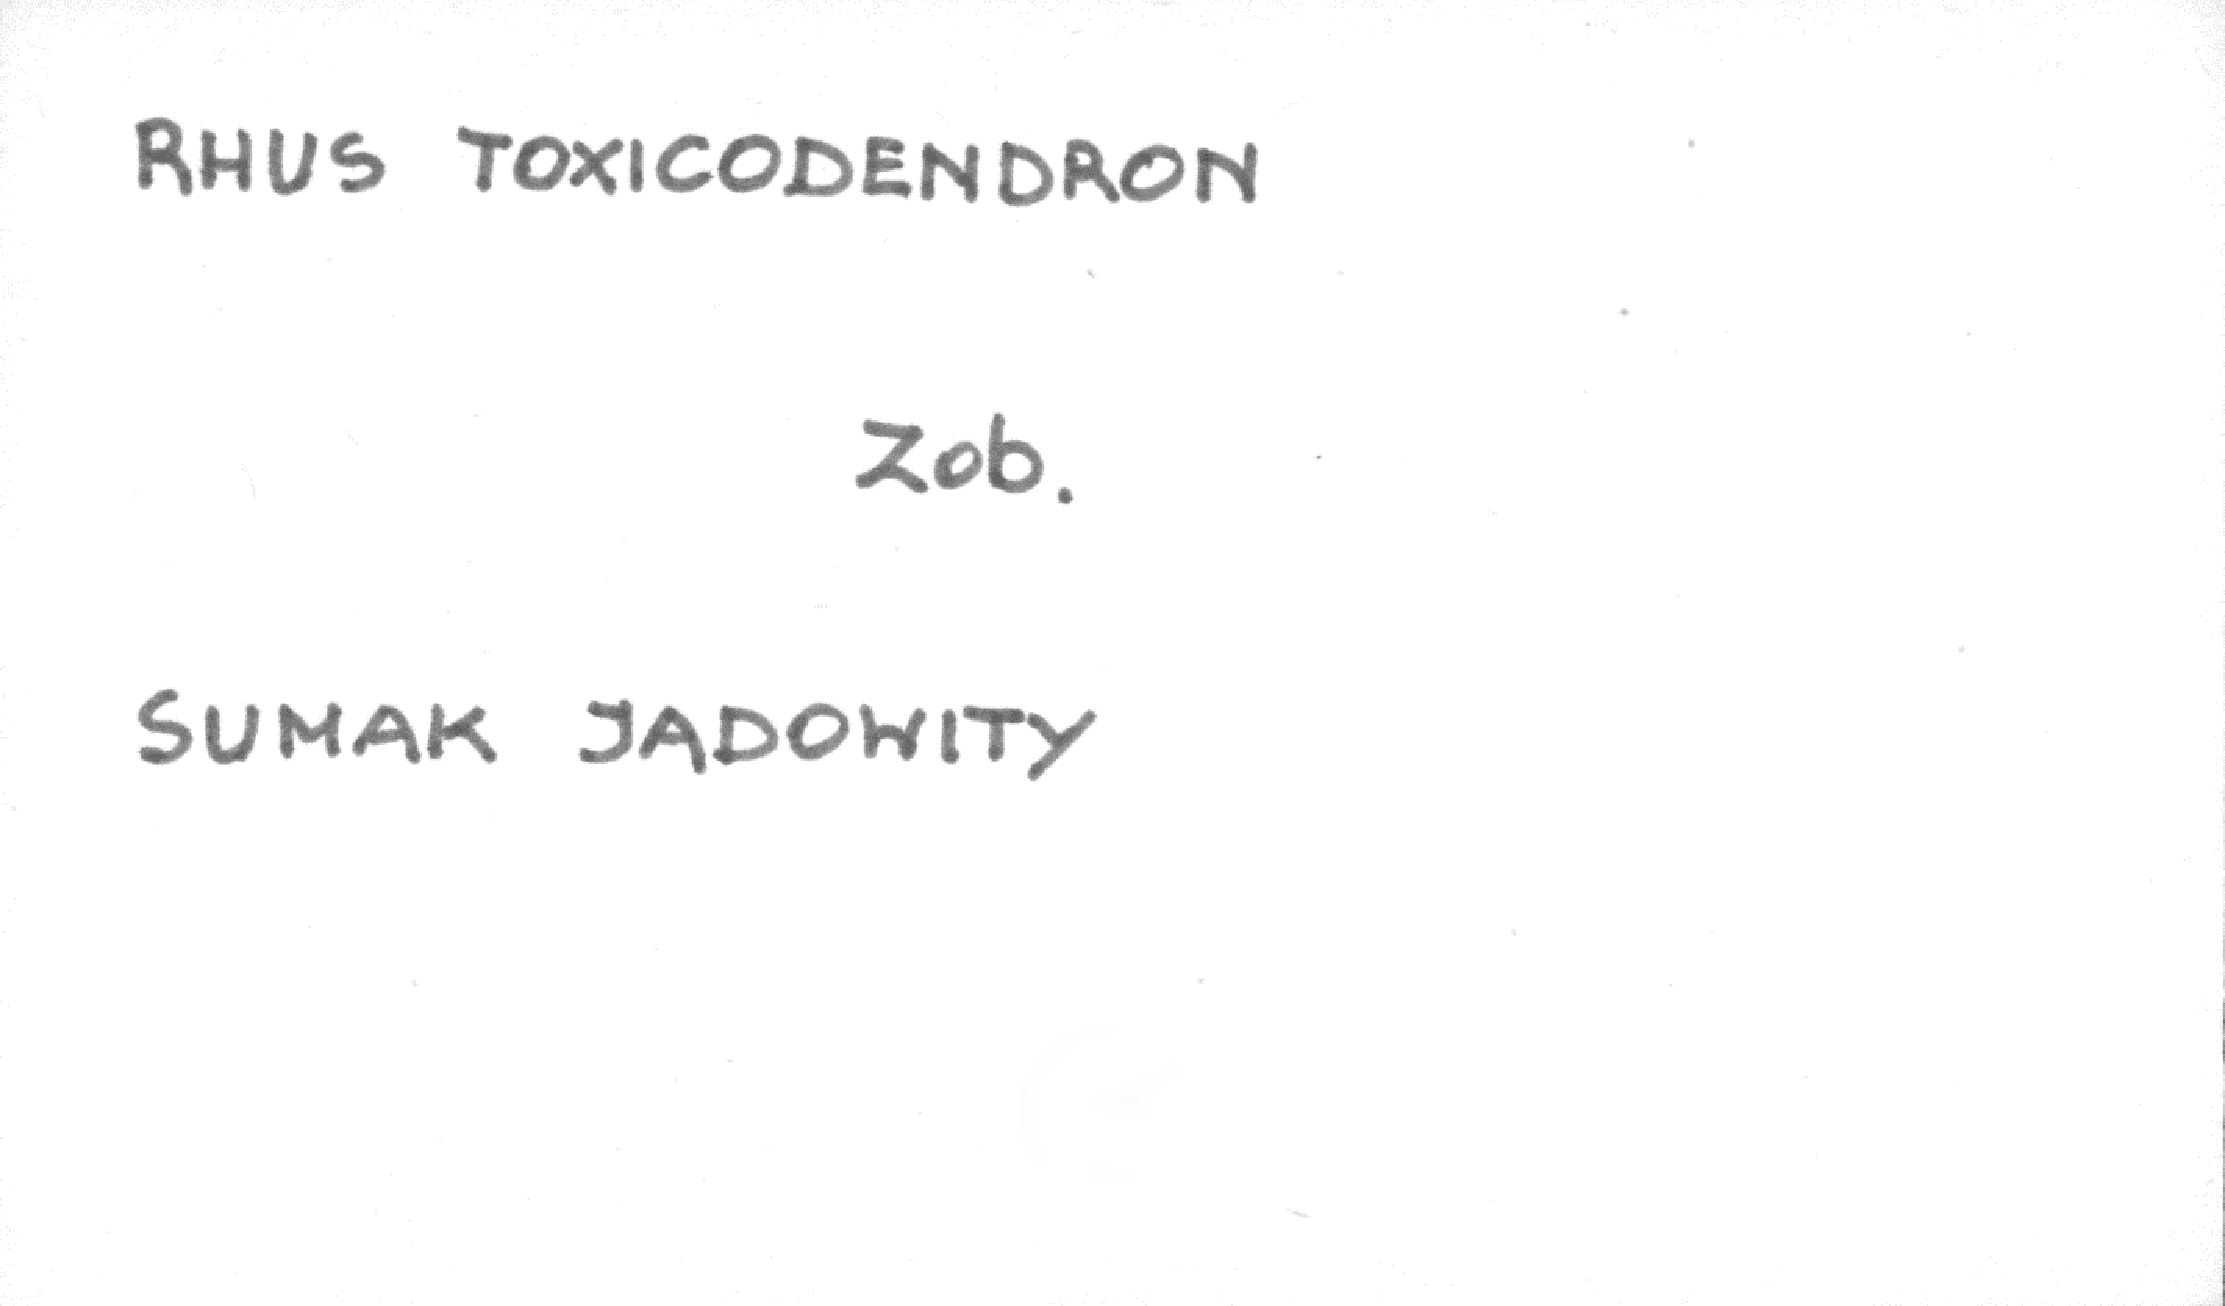 RHUS TOXICODENDRON
Zob.
SUMAK JADOWITY